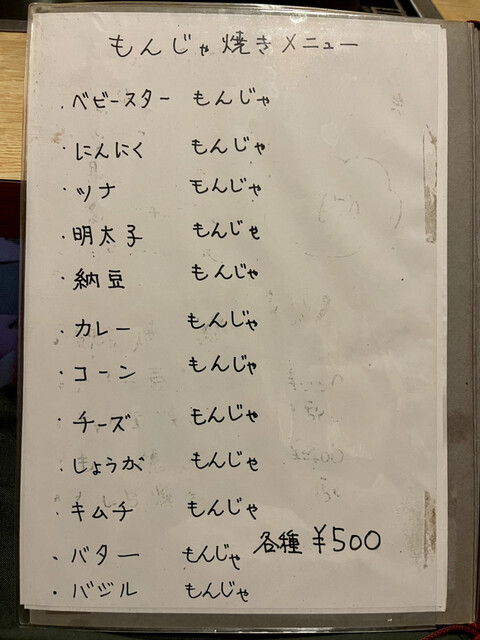 もんじゃ焼きメニュー
・ベビースター もんじゃ
・にんにく もんじゃ
・ツナ もんじゃ
・明太子 もんじゃ
・納豆 もんじゃ
・カレー もんじゃ
・コーン もんじゃ
・チーズ もんじゃ
・しょうが もんじゃ
・キムチ もんじゃ
・バター もんじゃ
各種 ¥500
・バジル もんじゃ